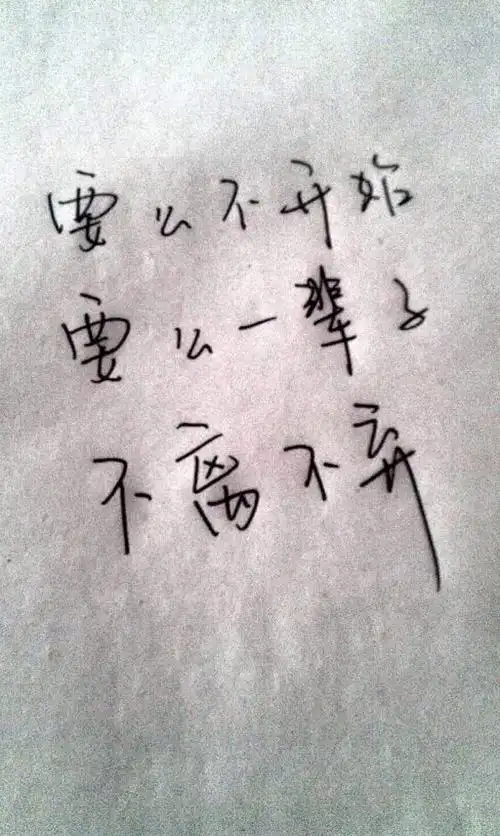 要么不开始
要么一辈子
不离不弃